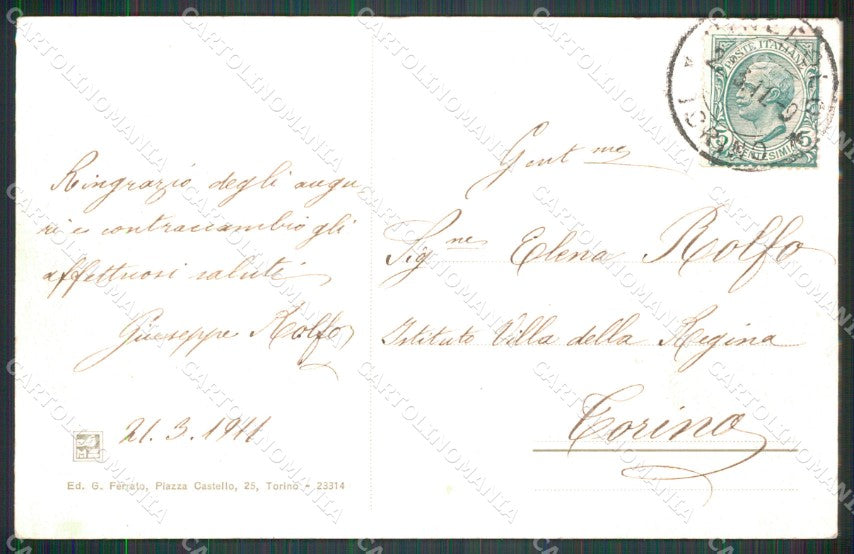 Ringrazio degli augu
ri e contraccambio gli
affettuosi saluti
Giuseppe Rolfo
21.3.1911
Ed. G. Ferrato, Piazza Castello, 25, Torino - 23314
POSTE ITALIANE
CENTESIMI
TORINO
Gent me
Sig ne Elena Rolfo
Istituto Villa della Regina
Torino
CARTOLINOMANIA